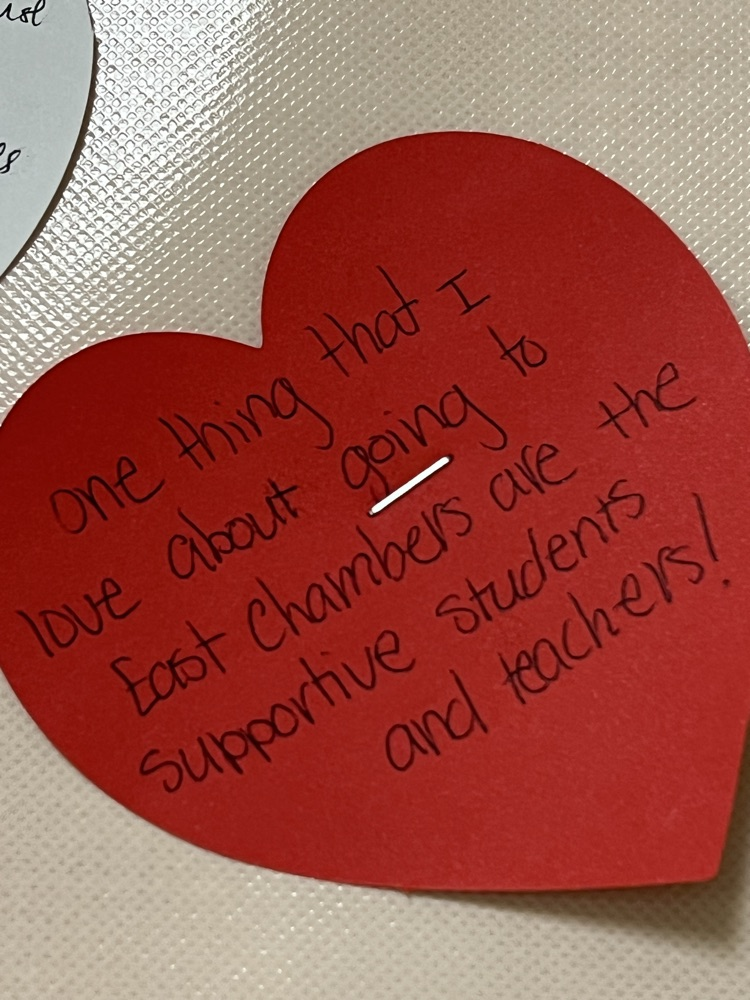 one thing that I
love about going to
East Chambers are the
supportive students
and teachers!